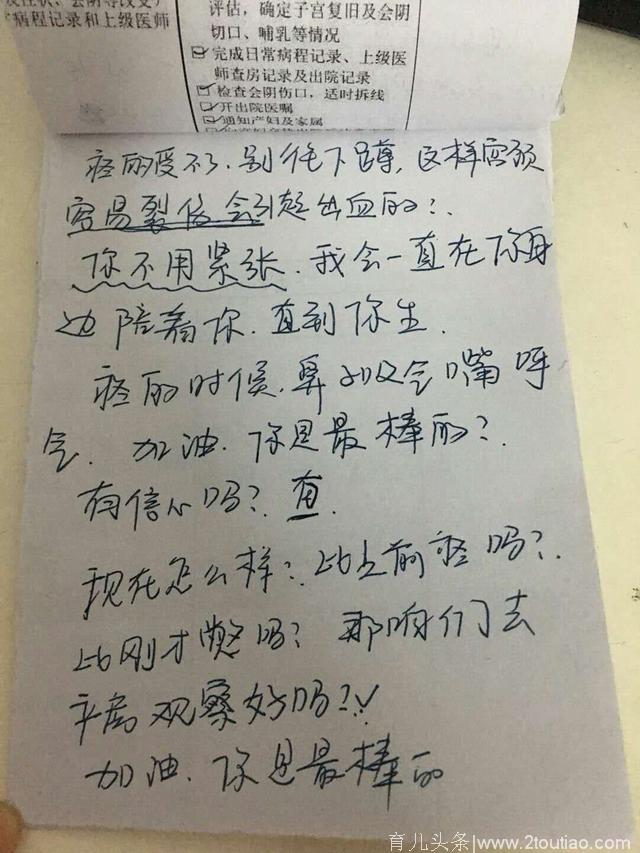 评估，确定子宫复旧及会阴
病程记录和上级医师
切口、哺乳等情况
完成日常病程记录、上级医
师查房记录及出院记录
检查会阴伤口，适时拆线
开出院医嘱
通知产妇及家属
疼的受不了.别往下蹲,这样宫颈
容易裂伤会引起出血的?.
你不用紧张.我会一直在你身
边陪着你.直到你生.
疼的时候.鼻子吸气嘴呼
气.加油.你是最棒的?.
有信心吗?.有.
现在怎么样?.比之前疼吗?.
比刚才憋吗?那咱们去
产房观察好吗?!
加油.你是最棒的
育儿头条|www.2toutiao.com